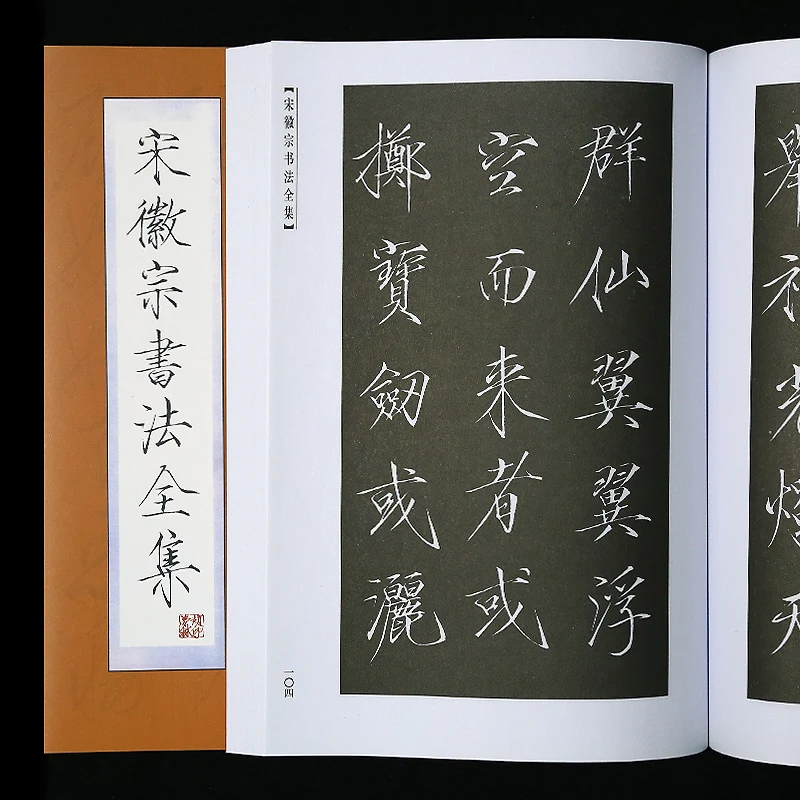 宋徽宗書法全集
【宋徽宗书法全集】
群仙翼翼浮
空而来者或
擲寶劒或灑
一〇四